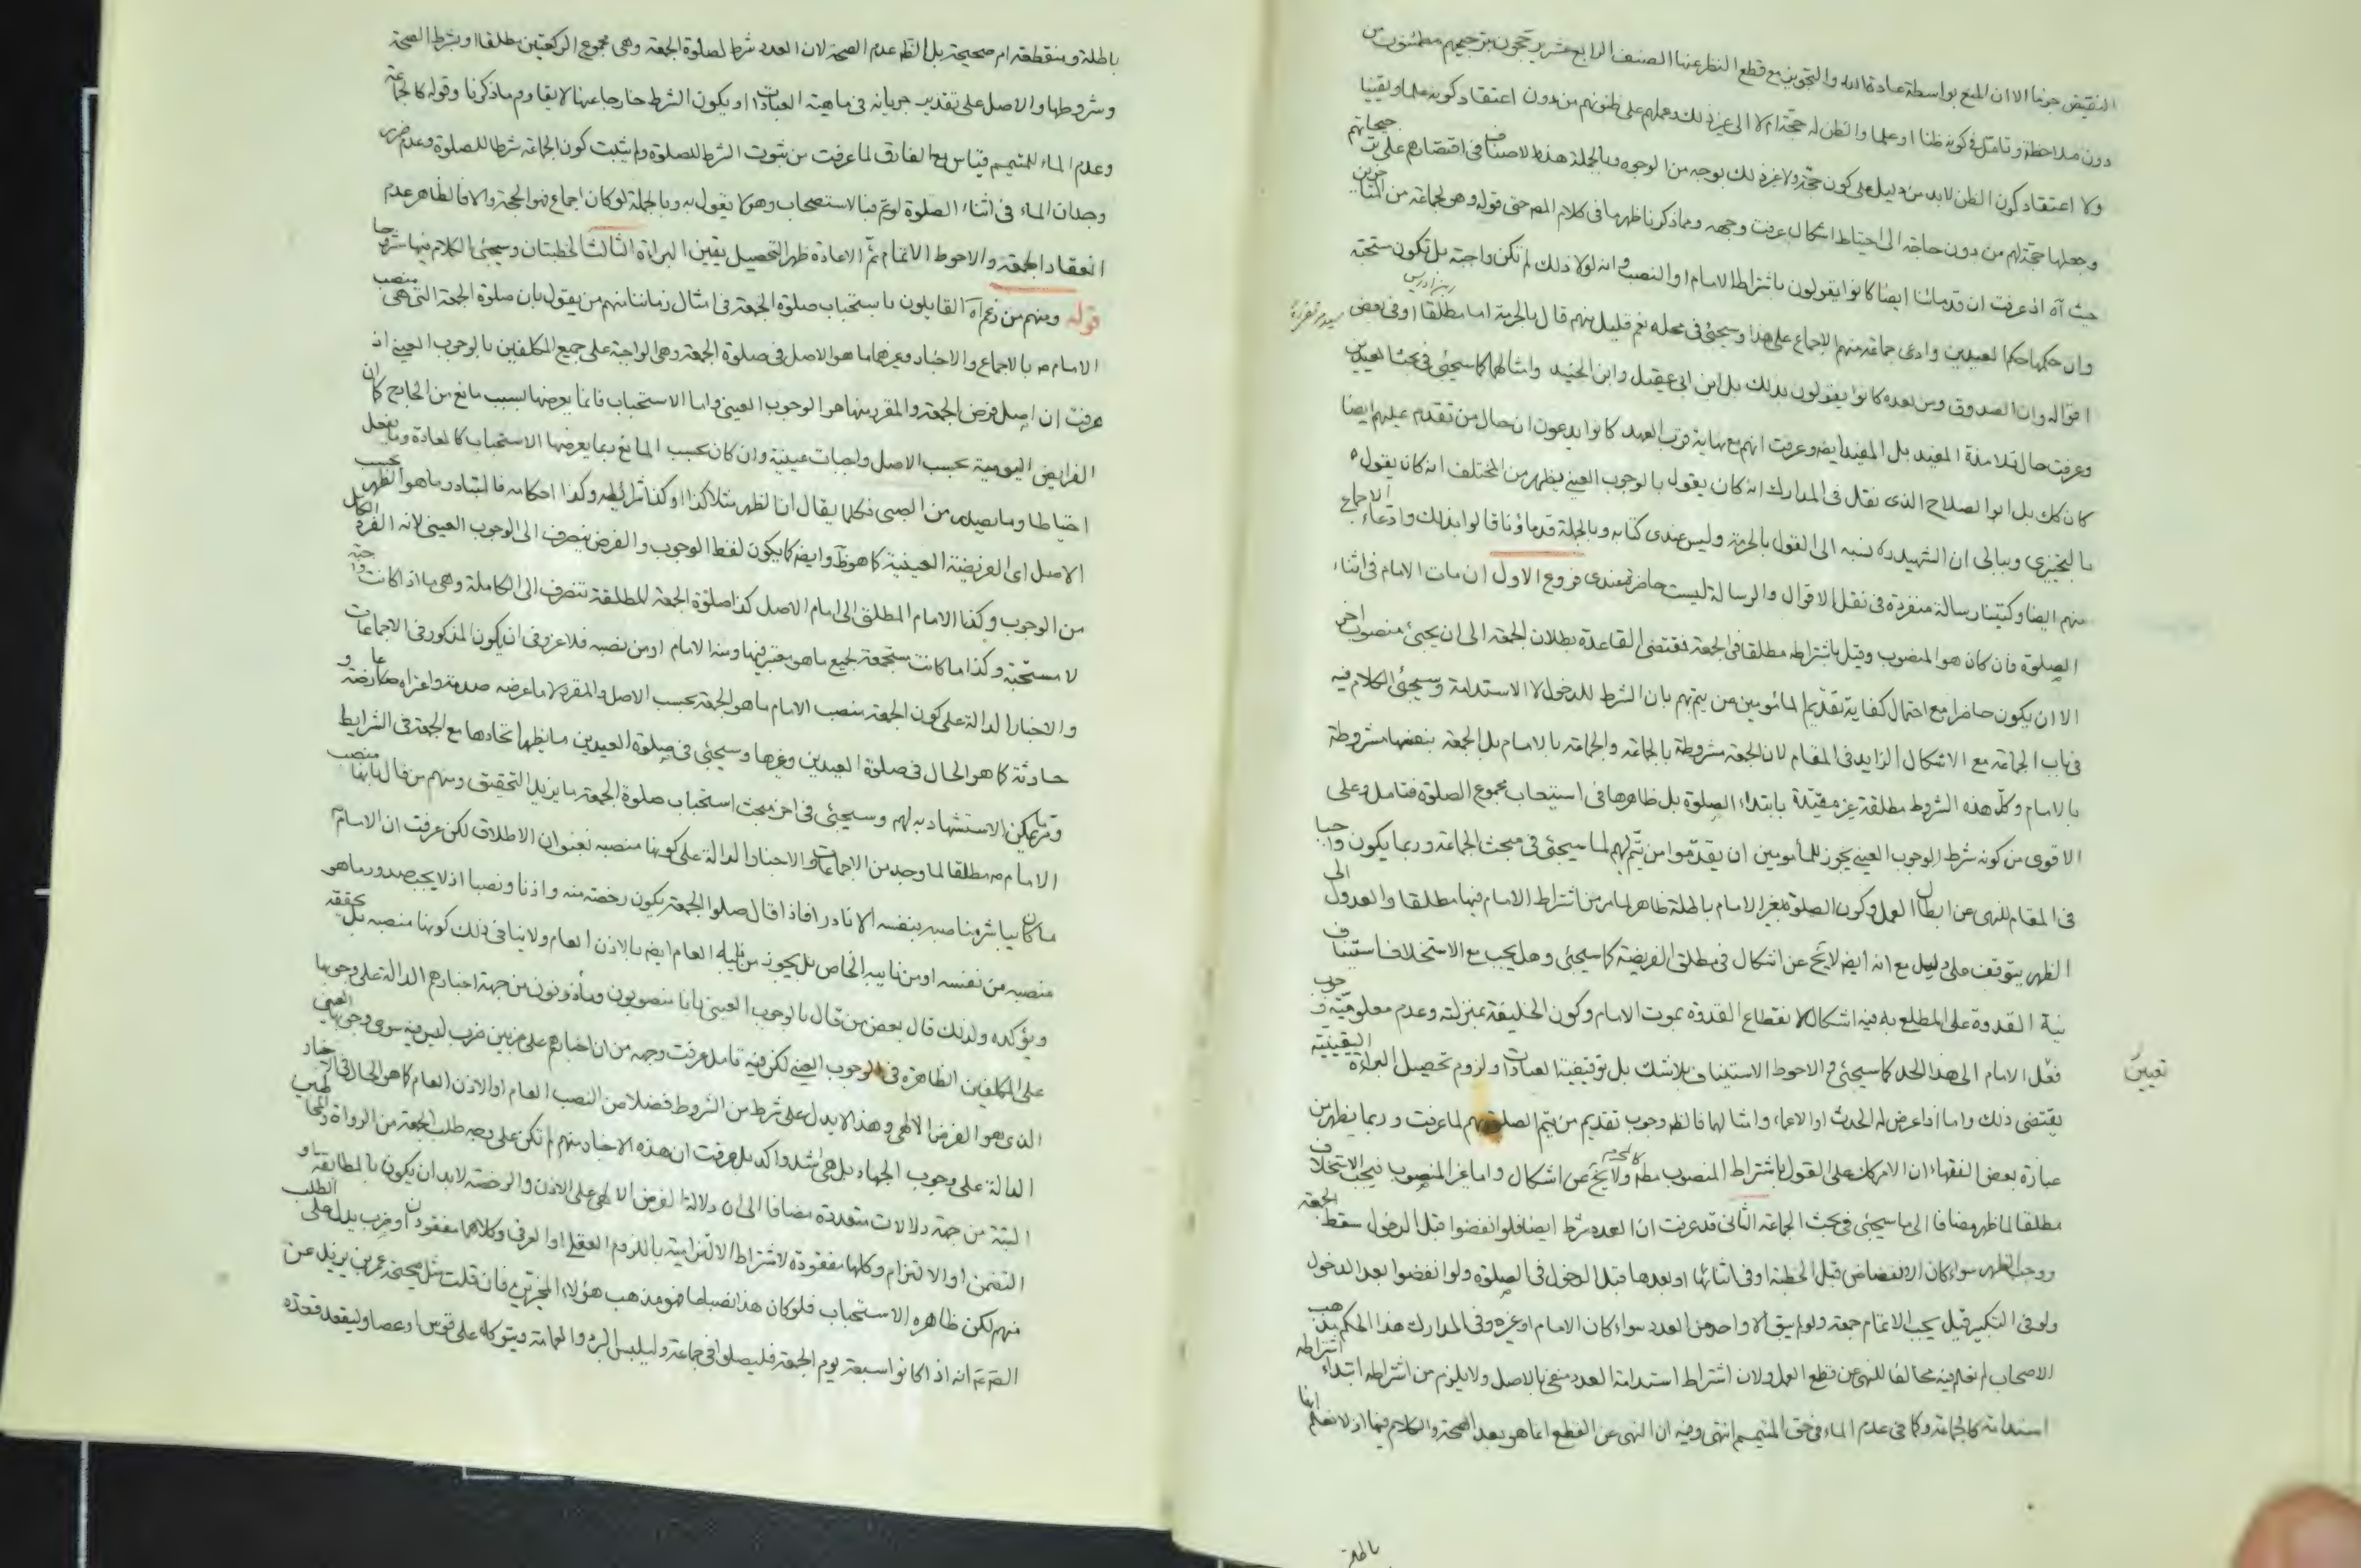 النقيض جزما الا ان المنع بواسطة عادة الله والتجويز مع قطع النظر عنها الصنف الرابع عشر يرجحون بترجيحهم مطمئنون من
دون ملاحظة وتامل في كونه ظنا او علما والظن له حجة ام لا الى غير ذلك وعملهم على ظنونهم من دون اعتقاد كونه علما ويقينيا
ولا اعتقاد كون الظن لابد من دليل على كون حجة ولا غير ذلك بوجه من الوجوه وبالجملة هذه الاصناف في اقتصارهم على ترجيحاتهم
وجعلها حجة لهم من دون حاجة الى احتياط اشكال عرفت وجهه ومما ذكرنا ظهر ما في كلام المص حتى قوله وهو لجماعة من المتاخرين
حيث آه اذ عرفت ان قدمائنا ايضا كانوا يقولون باشتراط الامام او النصب وانه لولا ذلك لم تكن واجبة بل تكون مستحبة
وان حكمها حكم العيدين وادعى جماعة منهم الاجماع على هذا وسيجئ في محله نعم قليل منهم قال بالحرمة اما مطلقا او في بعض
ابن ادريس
اقواله وان الصدوق ومن بعده كانوا يقولون بذلك بل ابن ابي عقيل وابن الجنيد وامثالهما كما سيجئ في بحث العيدين
وعرفت حال تلامذة المفيد بل المفيد ايضا وعرفت انهم مع نهاية قرب العهد كانوا يدعون ان حال من تقدم عليهم ايضا
كان كك بل ابو الصلاح الذى نقل في المدارك انه كان يقول بالوجوب العيني يظهر من المختلف انه كان يقول
بالتخييرى وببالى ان الشهيد ره نسبه الى القول بالحرمة وليس عندى كتابه وبالجملة قدماؤنا قالوا بذلك وادعاء الاجماع
منهم ايضا وكتبنا رسالة منفردة في نقل الاقوال والرسالة ليست حاضرة عندى فروع الاول ان مات الامام في اثناء
الصلوة فان كان هو المنصوب وقيل باشتراطه مطلقا في الجمعة فمقتضى القاعدة بطلان الجمعة الى ان يجيئ منصوب اخر
الا ان يكون حاضرا مع احتمال كفاية تقديم المأمومين من يتم بهم بان الشرط للدخول لا الاستدامة وسيجئ الكلام فيه
في باب الجماعة مع الاشكال الزايد في المقام لان الجمعة مشروطة بالجماعة والجماعة بالامام بل الجمعة بنفسها مشروطة
بالامام وكل هذه الشروط مطلقة غير مقيدة بابتداء الصلوة بل ظاهرها في استيعاب مجموع الصلوة فتامل وعلى
الاقوى من كونه شرط الوجوب العيني يجوز للمأمومين ان يقدموا من يتم لهم لما سيجئ في مبحث الجماعة وربما يكون واجبا
في المقام للنهى عن ابطال العمل وكون الصلوة بغير الامام باطلة ظاهرا لما مر من اشتراط الامام فيها مطلقا والعدول الى
الظهر يتوقف على دليل مع انه ايضا لا يخ عن اشكال في مطلق الفريضة كما سيجئ وهل يجب مع الاستخلاف استيناف
نية القدوة على المطلع به فيه اشكال لانقطاع القدوة بموت الامام وكون الخليفة بمنزلته وعدم معلومية وجوب
تعيين
فعل الامام الى هذا الحد كما سيجئ والاحوط الاستيناف بلا شك بل توقيفية العبادات ولزوم تحصيل البراءة اليقينية
يقتضى ذلك واما اذا عرض له الحدث او الاغماء وامثالهما فالظ وجوب تقديم من يتم الصلوة بهم لما عرفت وربما يظهر من
عبارة بعض الفقهاء ان الامر كك على القول باشتراط المنصوب مطلقا ولا يخ عن اشكال واما غير المنصوب فيجب الاستخلاف
مطلقا لما ظهر مضافا الى ما سيجئ في بحث الجماعة الثانى قد عرفت ان العدد شرط ايضا فلو انفضوا قبل الدخول سقط الجمعة
ووجب الظهر سواء كان الانفضاض قبل الخطبة او في اثنائها او بعدها قبل الدخول في الصلوة ولو انفضوا بعد الدخول
ولو في التكبير قيل يجب الاتمام جمعة ولو لم يبق الا واحد من العدد سواء كان الامام او غيره وفي المدارك هذا الحكم مذهب
الاصحاب لم نعلم فيه مخالفا للنهى عن قطع العمل ولان اشتراط استدامة العدد منفى بالاصل ولا يلزم من اشتراطه ابتداء اشتراطه
استدامة كالجماعة وكما في عدم الماء في حق المتيمم انتهى وفيه ان النهى عن القطع انما هو بعد الصحة والكلام فيها اذ لا نعلم انها
باطلة
باطلة ومنقطعة ام صحيحة بل الظ عدم الصحة لان العدد شرط لصلوة الجمعة وهى مجموع الركعتين مطلقا او بشرط الصحة
وشروطها والاصل على تقدير جريانه في ماهية العبادات او يكون الشرط خارجا عنها لا يقاوم ما ذكرنا وقوله كالجماعة
وعدم الماء للمتيمم قياس مع الفارق لما عرفت من ثبوت الشرط للصلوة ولم يثبت كون الجماعة شرطا للصلوة وعدم ضرر
وجدان الماء في اثناء الصلوة لو تم فبالاستصحاب وهو لا يقول به وبالجملة لو كان اجماع فهو الحجة والا فالظاهر عدم
انعقاد الجمعة والاحوط الاتمام ثم الاعادة ظهرا لتحصيل يقين البراءة الثالث الخطبتان وسيجئ الكلام فيها مشروحا
قوله ومنهم من زعم آه القايلون باستحباب صلوة الجمعة في امثال زماننا منهم من يقول بان صلوة الجمعة التى هى منصب
الامام ع بالاجماع والاخبار وغيرهما ما هو الاصل في صلوة الجمعة وهى الواجبة على جميع المكلفين بالوجوب العيني اذ
عرفت ان اصل فرض الجمعة والمقرر منها هو الوجوب العيني واما الاستحباب فانما يعرضها بسبب مانع من الخارج كما ان
الفرايض اليومية بحسب الاصل واجبات عينية وان كان بحسب المانع ربما يعرضها الاستحباب كالمعادة وما يفعل
احتياطا وما يصدر من الصبى فكلما يقال ان الظهر مثلا كذا او كذا شرائطه وكذا احكامه فالمتبادر ما هو الظهر بحسب
الاصل اى الفريضة العينية كما هو ظ وايضا كما يكون لفظ الوجوب والفرض ينصرف الى الوجوب العينى لانه الفرد الكامل
من الوجوب وكذا الامام المطلق الى امام الاصل كذا صلوة الجمعة المطلقة تنصرف الى الكاملة وهى ما اذا كانت واجبة
لا مستحبة وكذا ما كانت مستجمعة لجميع ما هو معتبر فيها ومنه الامام او من نصبه فلا غرو في ان يكون المذكور في الاجماعات
والاخبار الدالة على كون الجمعة منصب الامام ما هو الجمعة بحسب الاصل والمقرر لا ما عرضه
حادثة كما هو الحال في صلوة العيدين وغيرها وسيجئ في صلوة العيدين ما يظهر اتحادها مع الجمعة في الشرايط
وربما يمكن الاستشهاد به لهم وسيجئ في اخر مبحث استحباب صلوة الجمعة ما يزيد التحقيق ومنهم من قال بانها منصب
الامام ع مطلقا لما وجد من الاجماعات والاخبار الدالة على كونها منصبه بعنوان الاطلاق لكن عرفت ان الامام ع
ما كان يباشر مناصبه بنفسه الا نادرا فاذا قال صلوا الجمعة يكون رخصة منه واذنا ونصبا اذ لا يجب صدور ما هو
منصبه من نفسه او من نايبه الخاص بل يجوز من قبله العام ايضا بالاذن العام ولا ينافى ذلك كونها منصبه بل يحققه
ويؤكده ولذلك قال بعض من قال بالوجوب العينى بانا منصوبون ومأذونون من جهة اخبارهم الدالة على وجوبها
على المكلفين الظاهرة في الوجوب العيني لكن فيه تامل عرفت وجهه من ان اخبارهم على ضربين ضرب ليس فيه سوى وجوبها العيني
الذى هو الفرض الالهى وهذا لا يدل على شرط من الشروط فضلا من النصب العام او الاذن العام كما هو الحال في الاخبار
الدالة على وجوب الجهاد بل هى اشد واكد بل عرفت ان هذه الاخبار منهم لم تكن على وجه طلب الجمعة من الرواة والمخاطبين
البتة من جهة دلالات متعددة مضافا الى ان دلالة الفرض الالهى على الاذن والرخصة لابد ان يكون بالمطابقة او
التضمن او الالتزام وكلها مفقودة لاشتراط الالتزامية باللزوم العقلى او العرفى وكلاهما مفقودان وضرب يدل على الطلب
منهم لكن ظاهره الاستحباب فلو كان هذا نصبا عاما فهو مذهب هؤلاء المخيرين فان قلت مثل صحيحة عمر بن يزيد عن
الصم انه اذا كانوا سبعة يوم الجمعة فليصلوا في جماعة وليلبس البرد والعمامة ويتوكا على قوس او عصا وليقعد قعدة